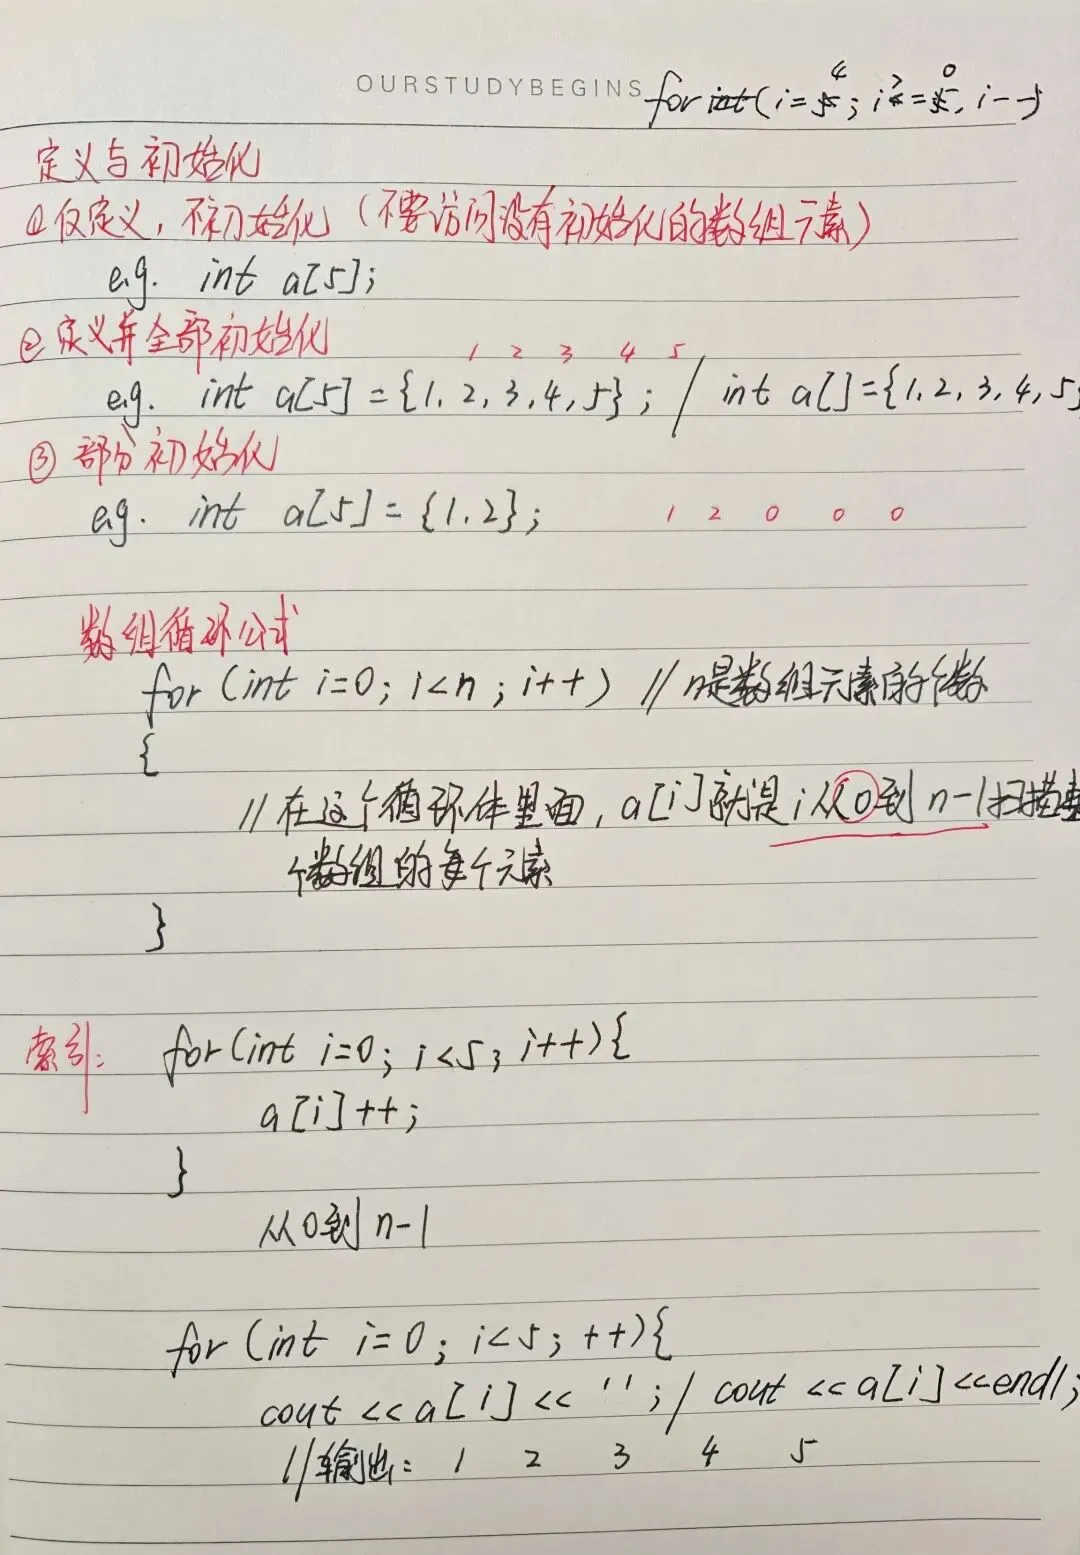 OURSTUDYBEGINS for (i=4; i>=0, i--)
定义与初始化
①仅定义，不初始化（不要访问没有初始化的数组元素）
e.g. int a[5];
②定义并全部初始化
1 2 3 4 5
e.g. int a[5]={1,2,3,4,5}; / int a[]={1,2,3,4,5}
③ 部分初始化
e.g. int a[5]={1,2}; 1 2 0 0 0
数组循环公式
for (int i=0; i<n; i++) //n是数组元素的个数
{
//在这个循环体里面，a[i]就是i从0到n-1扫描整
个数组的每个元素
}
索引： for(int i=0; i<5; i++){
a[i]++;
}
从0到n-1
for (int i=0; i<5; ++){
cout <<a[i]<< ' '; / cout <<a[i]<<endl;
//输出： 1 2 3 4 5